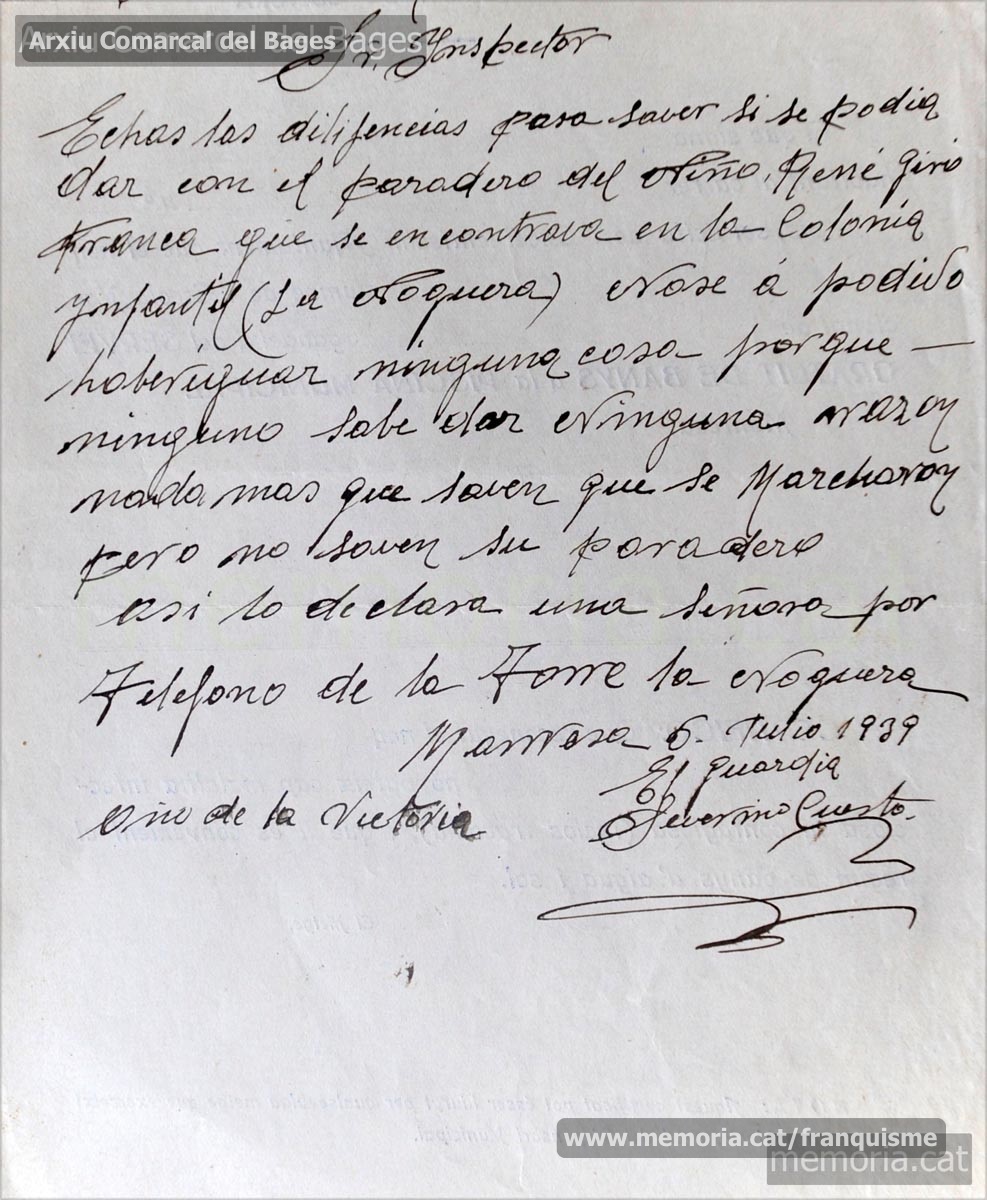 Arxiu Comarcal del Bages
Sr. Ynspector
Echas las dilifencias para saver si se podia
dar con el paradero del Niño, René Giró
Franca que se encontrava en la Colonia
Ynfantil (La Noguera) Nose á podido
haberiguar ninguna cosa porque —
ninguno sabe dar Ninguna razon
nada mas que saven que se Marcharon
pero no saven su paradero
asi lo declara una señora por
Telefono de la Torre la Noguera
Manresa 6. Julio 1939
El guardia
Año de la Victoria
Severino Cuesto.
www.memoria.cat/franquisme
memoria.cat